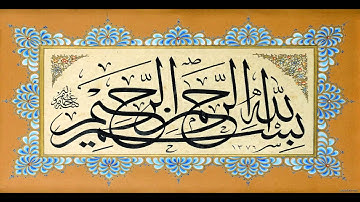 بسم الله الرحمن الرحيم
١٣٧٦